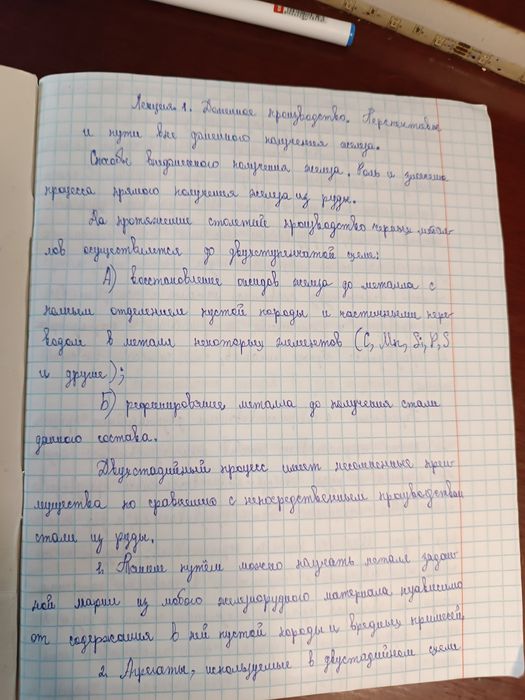 Лекция 1. Доменное производство. Перспективы
и пути вне доменного получения железа.
Способы внедоменного получения железа. Роль и значение
процесса прямого получения железа из руды.
На протяжение столетий производство черных метал-
лов осуществляется до двухступенчатой схеме:
А) восстановление оксидов железа до металла с
полным отделением пустой породы и частичным пере-
водом в металл некоторых элементов (C, Mn, Si, P, S
и другие);
Б) рафинирование металла до получения стали
данного состава.
Двухстадийный процесс имеет несомненные преи-
мущества по сравнению с непосредственным производством
стали из руды.
1. Таким путём можно получать металл задан-
ной марки из любого железорудного материала независимо
от содержания в ней пустой породы и вредных примесей
2. Агрегаты, используемые в двустадийном схеме